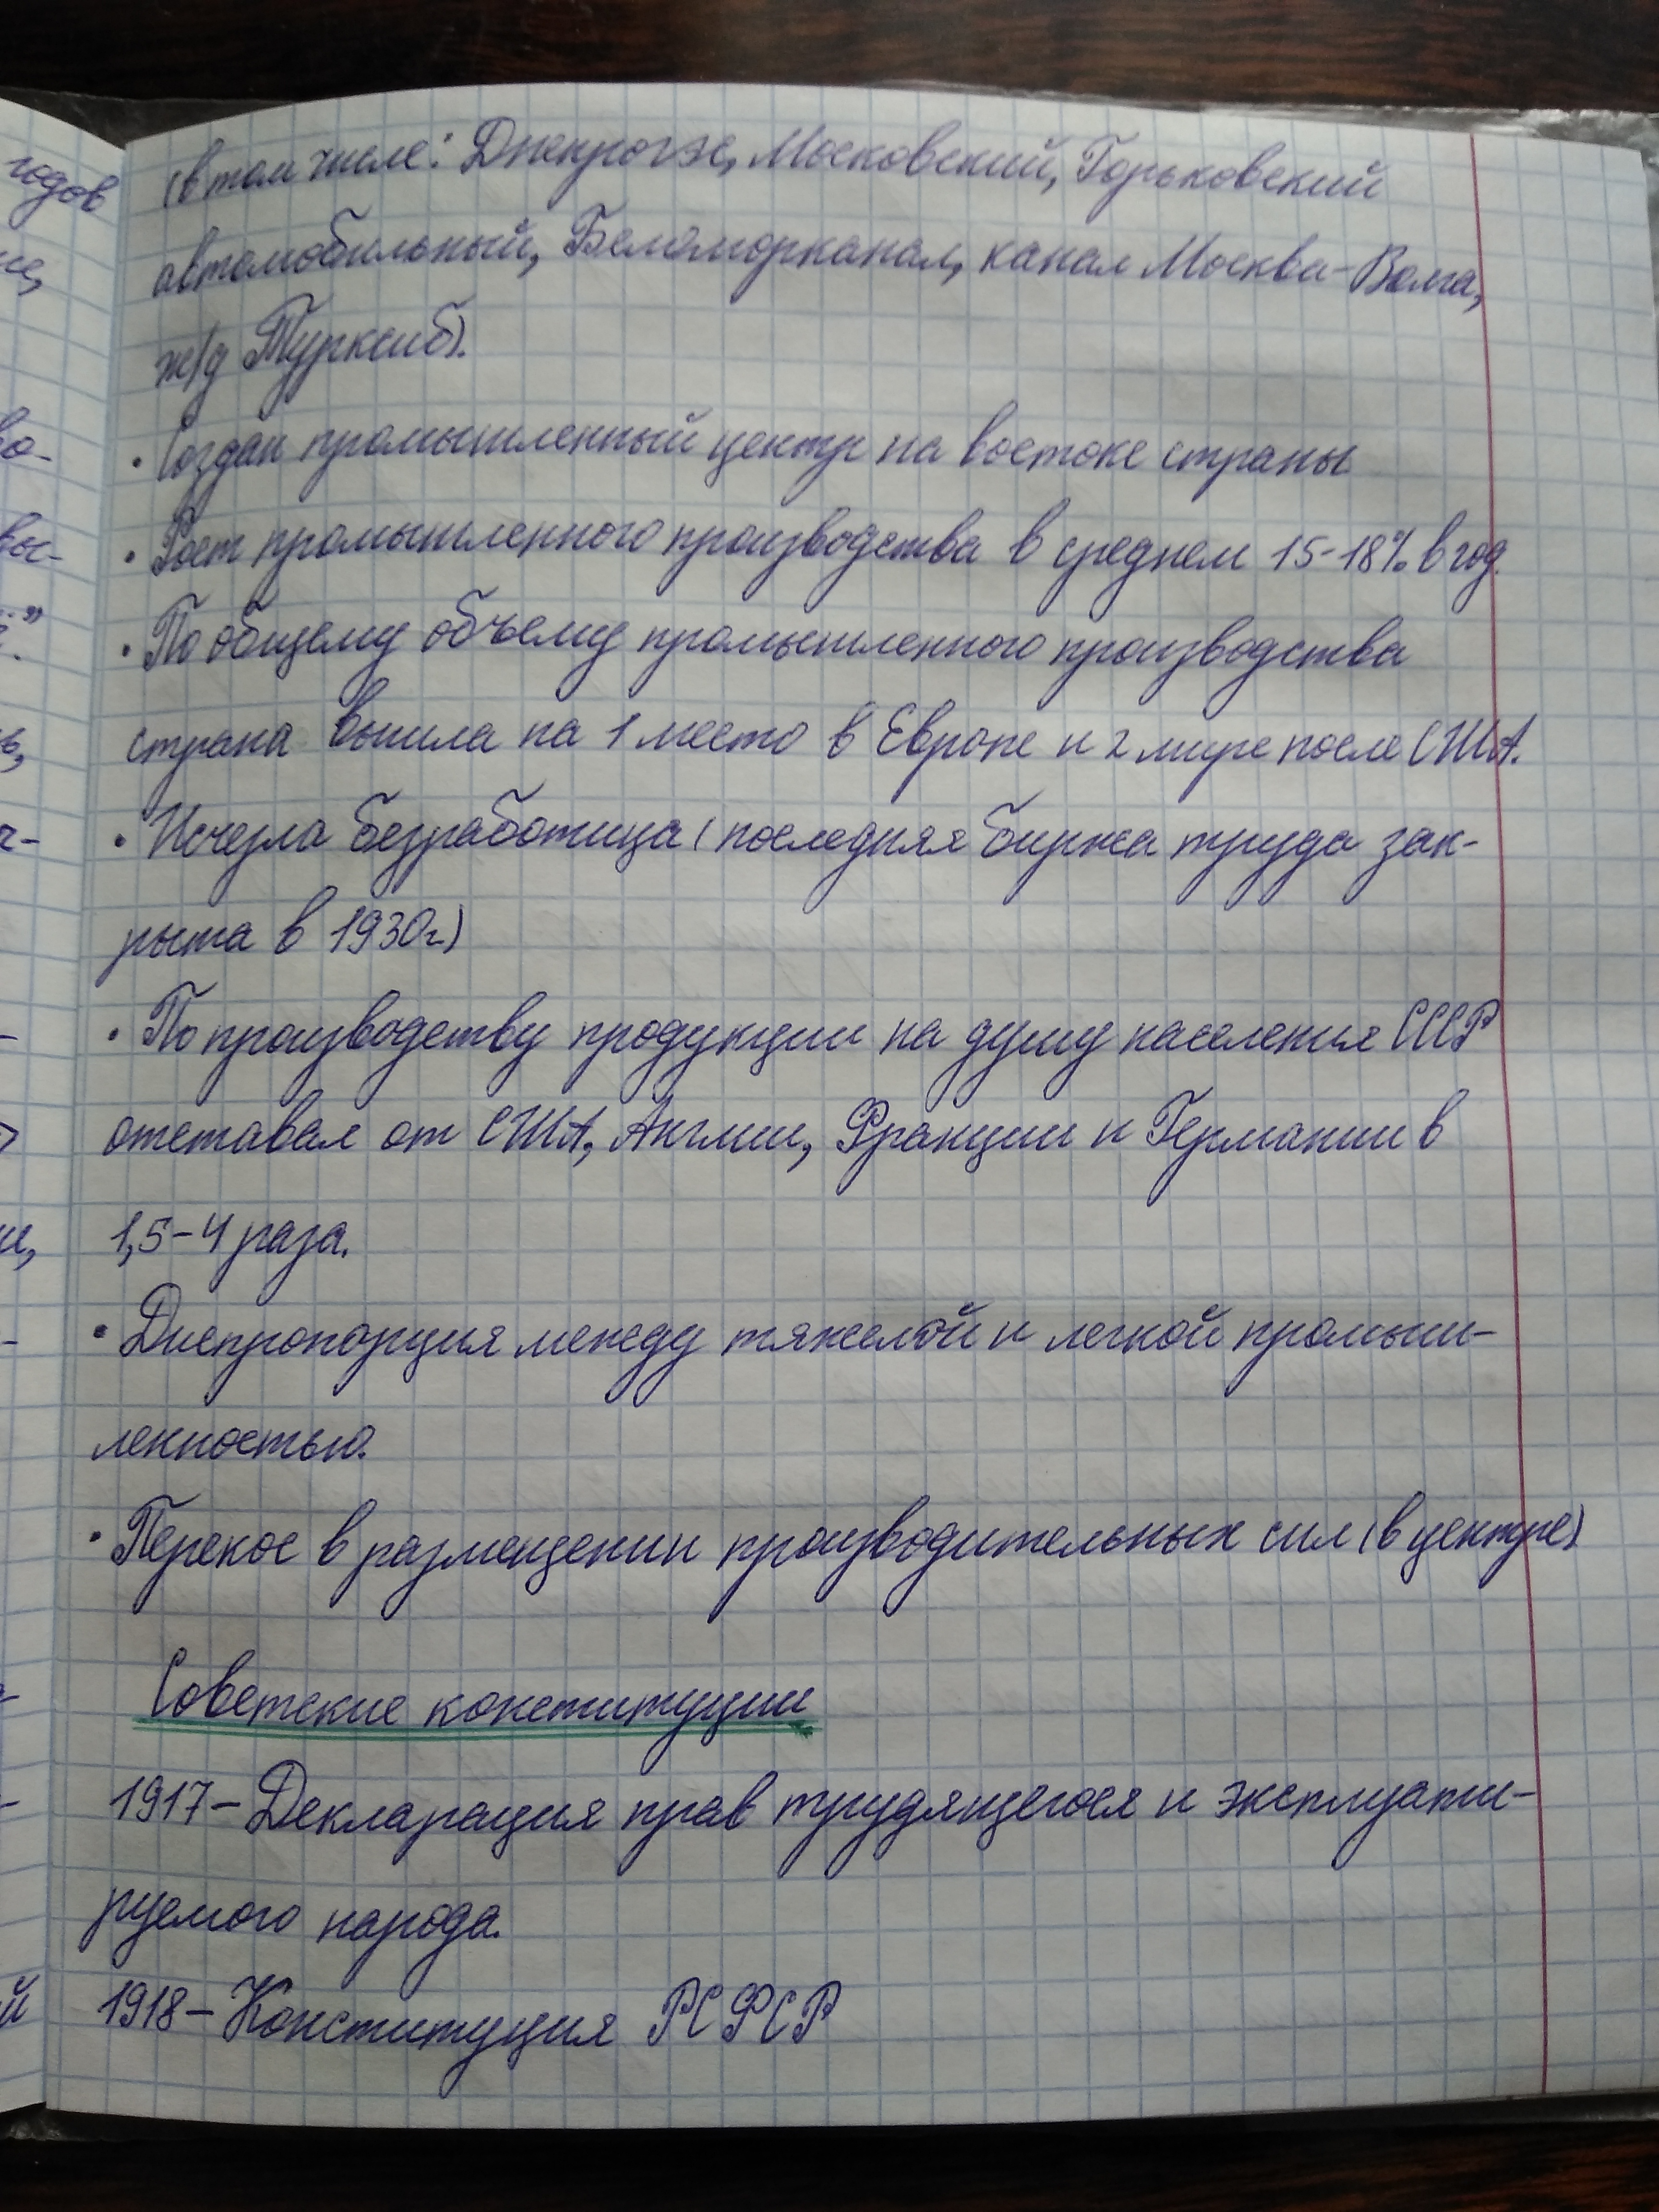 (в том числе: Днепрогэс, Московский, Горьковский
автомобильный, Беломорканал, канал Москва-Волга,
ж/д Турксиб).
• Создан промышленный центр на востоке страны
• Рост промышленного производства в среднем 15-18% в год.
• По общему объему промышленного производства
страна вышла на 1 место в Европе и 2 мире после США.
• Исчезла безработица (последняя биржа труда зак-
рыта в 1930г.)
• По производству продукции на душу населения СССР
отставал от США, Англии, Франции и Германии в
1,5-4 раза.
• Диспропорция между тяжелой и легкой промыш-
ленностью.
• Перекос в размещении производительных сил (в центре)
Советские конституции
1917-Декларация прав трудящегося и эксплуати-
руемого народа.
1918-Конституция РСФСР
годов